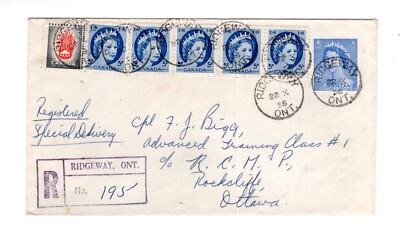 CANADA
5 CANADA
5 CANADA
5 CANADA
5 CANADA
5 CANADA
RIDGEWAY
22 X
56
ONT.
RIDGEWAY
ONT.
Registered
Special Delivery
Cpl F. J. Bigg,
Advanced Training Class #1
c/o R. C. M. P,
Rockcliffe,
Ottawa.
R
RIDGEWAY, ONT.
No. 195